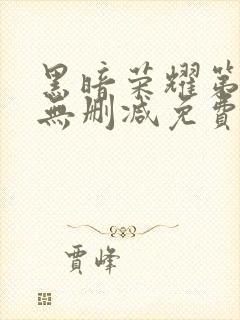 黑暗荣耀第
無删减免費
賈峰